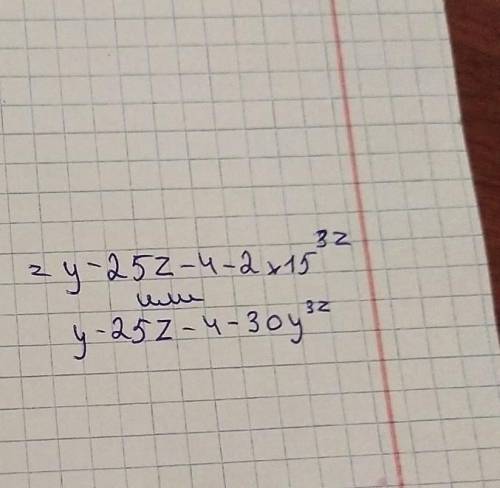 = y - 25z - 4 - 2 x 15^3z
или
y - 25z - 4 - 30y^3z